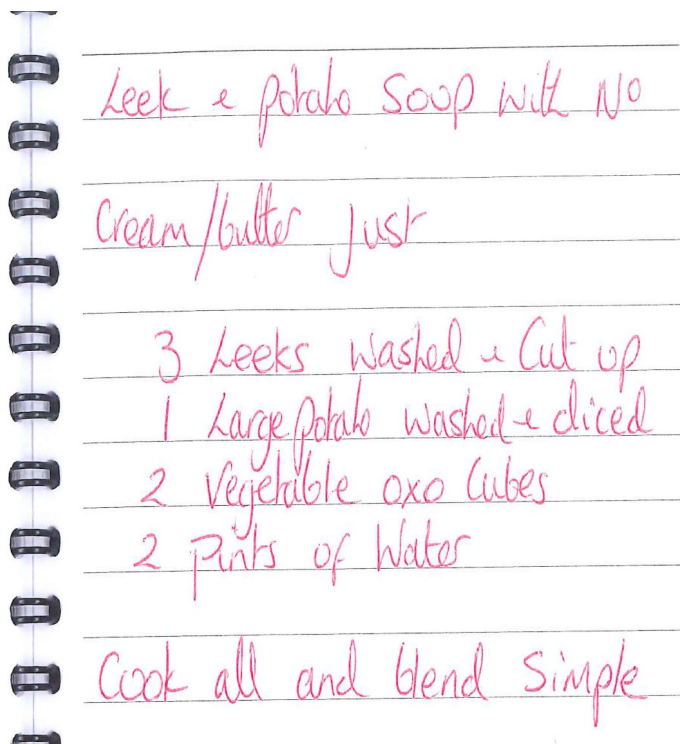 Leek & potato Soup with No
Cream/butter Just
3 Leeks washed & Cut up
1 Large potato washed & diced
2 vegetable oxo Cubes
2 Pints of Water
Cook all and blend Simple